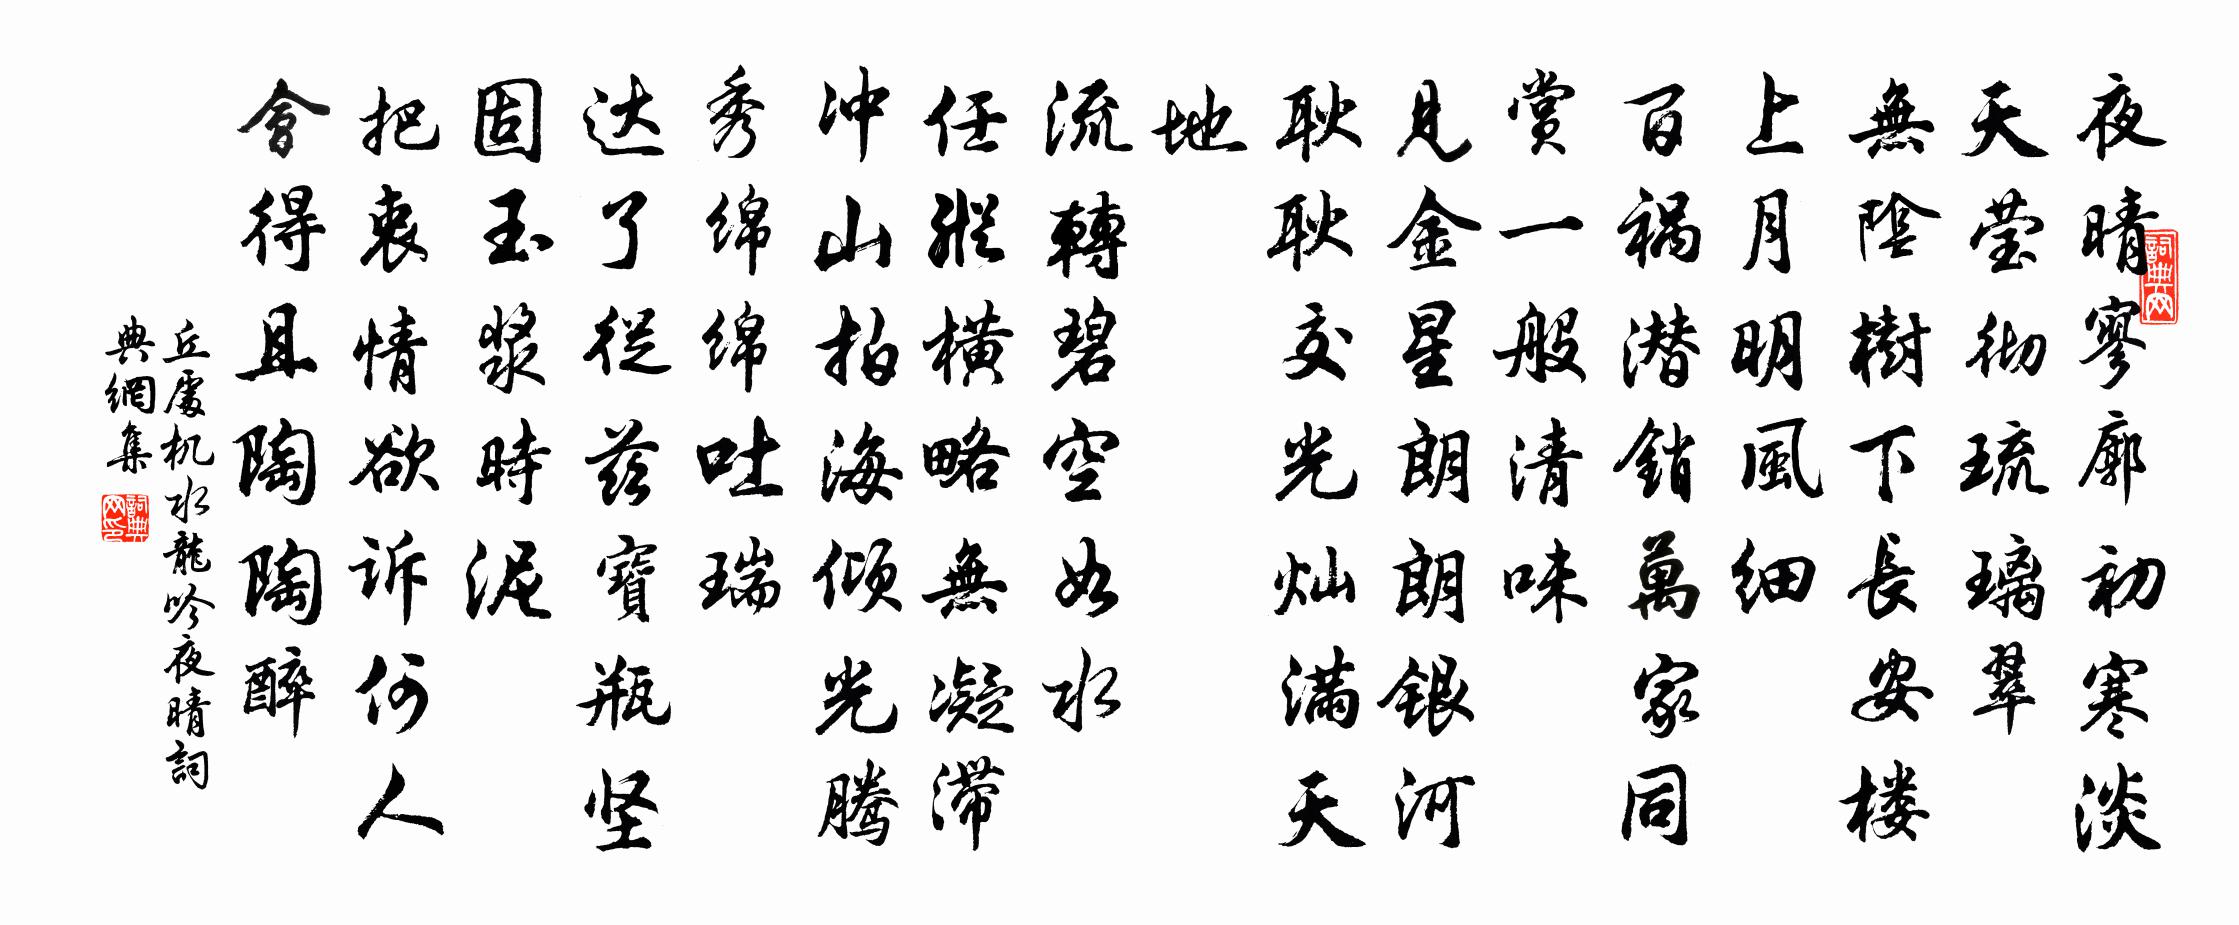 夜晴寥廓初寒淡
天莹彻琉璃翠
無陰樹下長安楼
上月明風细
百祸潜銷萬家同
赏一般清味
見金星朗朗銀河
耿耿交光灿满天
地
流轉碧空如水
任縱横略無凝滞
冲山拍海倾光腾
秀绵绵吐瑞
达了從兹寶瓶坚
固玉漿時泥
把衷情欲诉何人
會得且陶陶醉
丘處机水龍吟夜晴詞
典網集
詞典网
詞典网印